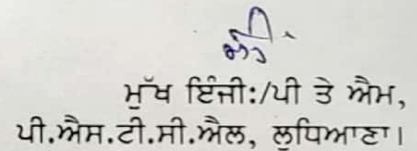 ਮੁੱਖ ਇੰਜੀ:/ਪੀ ਤੇ ਐਮ,
ਪੀ.ਐਸ.ਟੀ.ਸੀ.ਐਲ, ਲੁਧਿਆਣਾ।